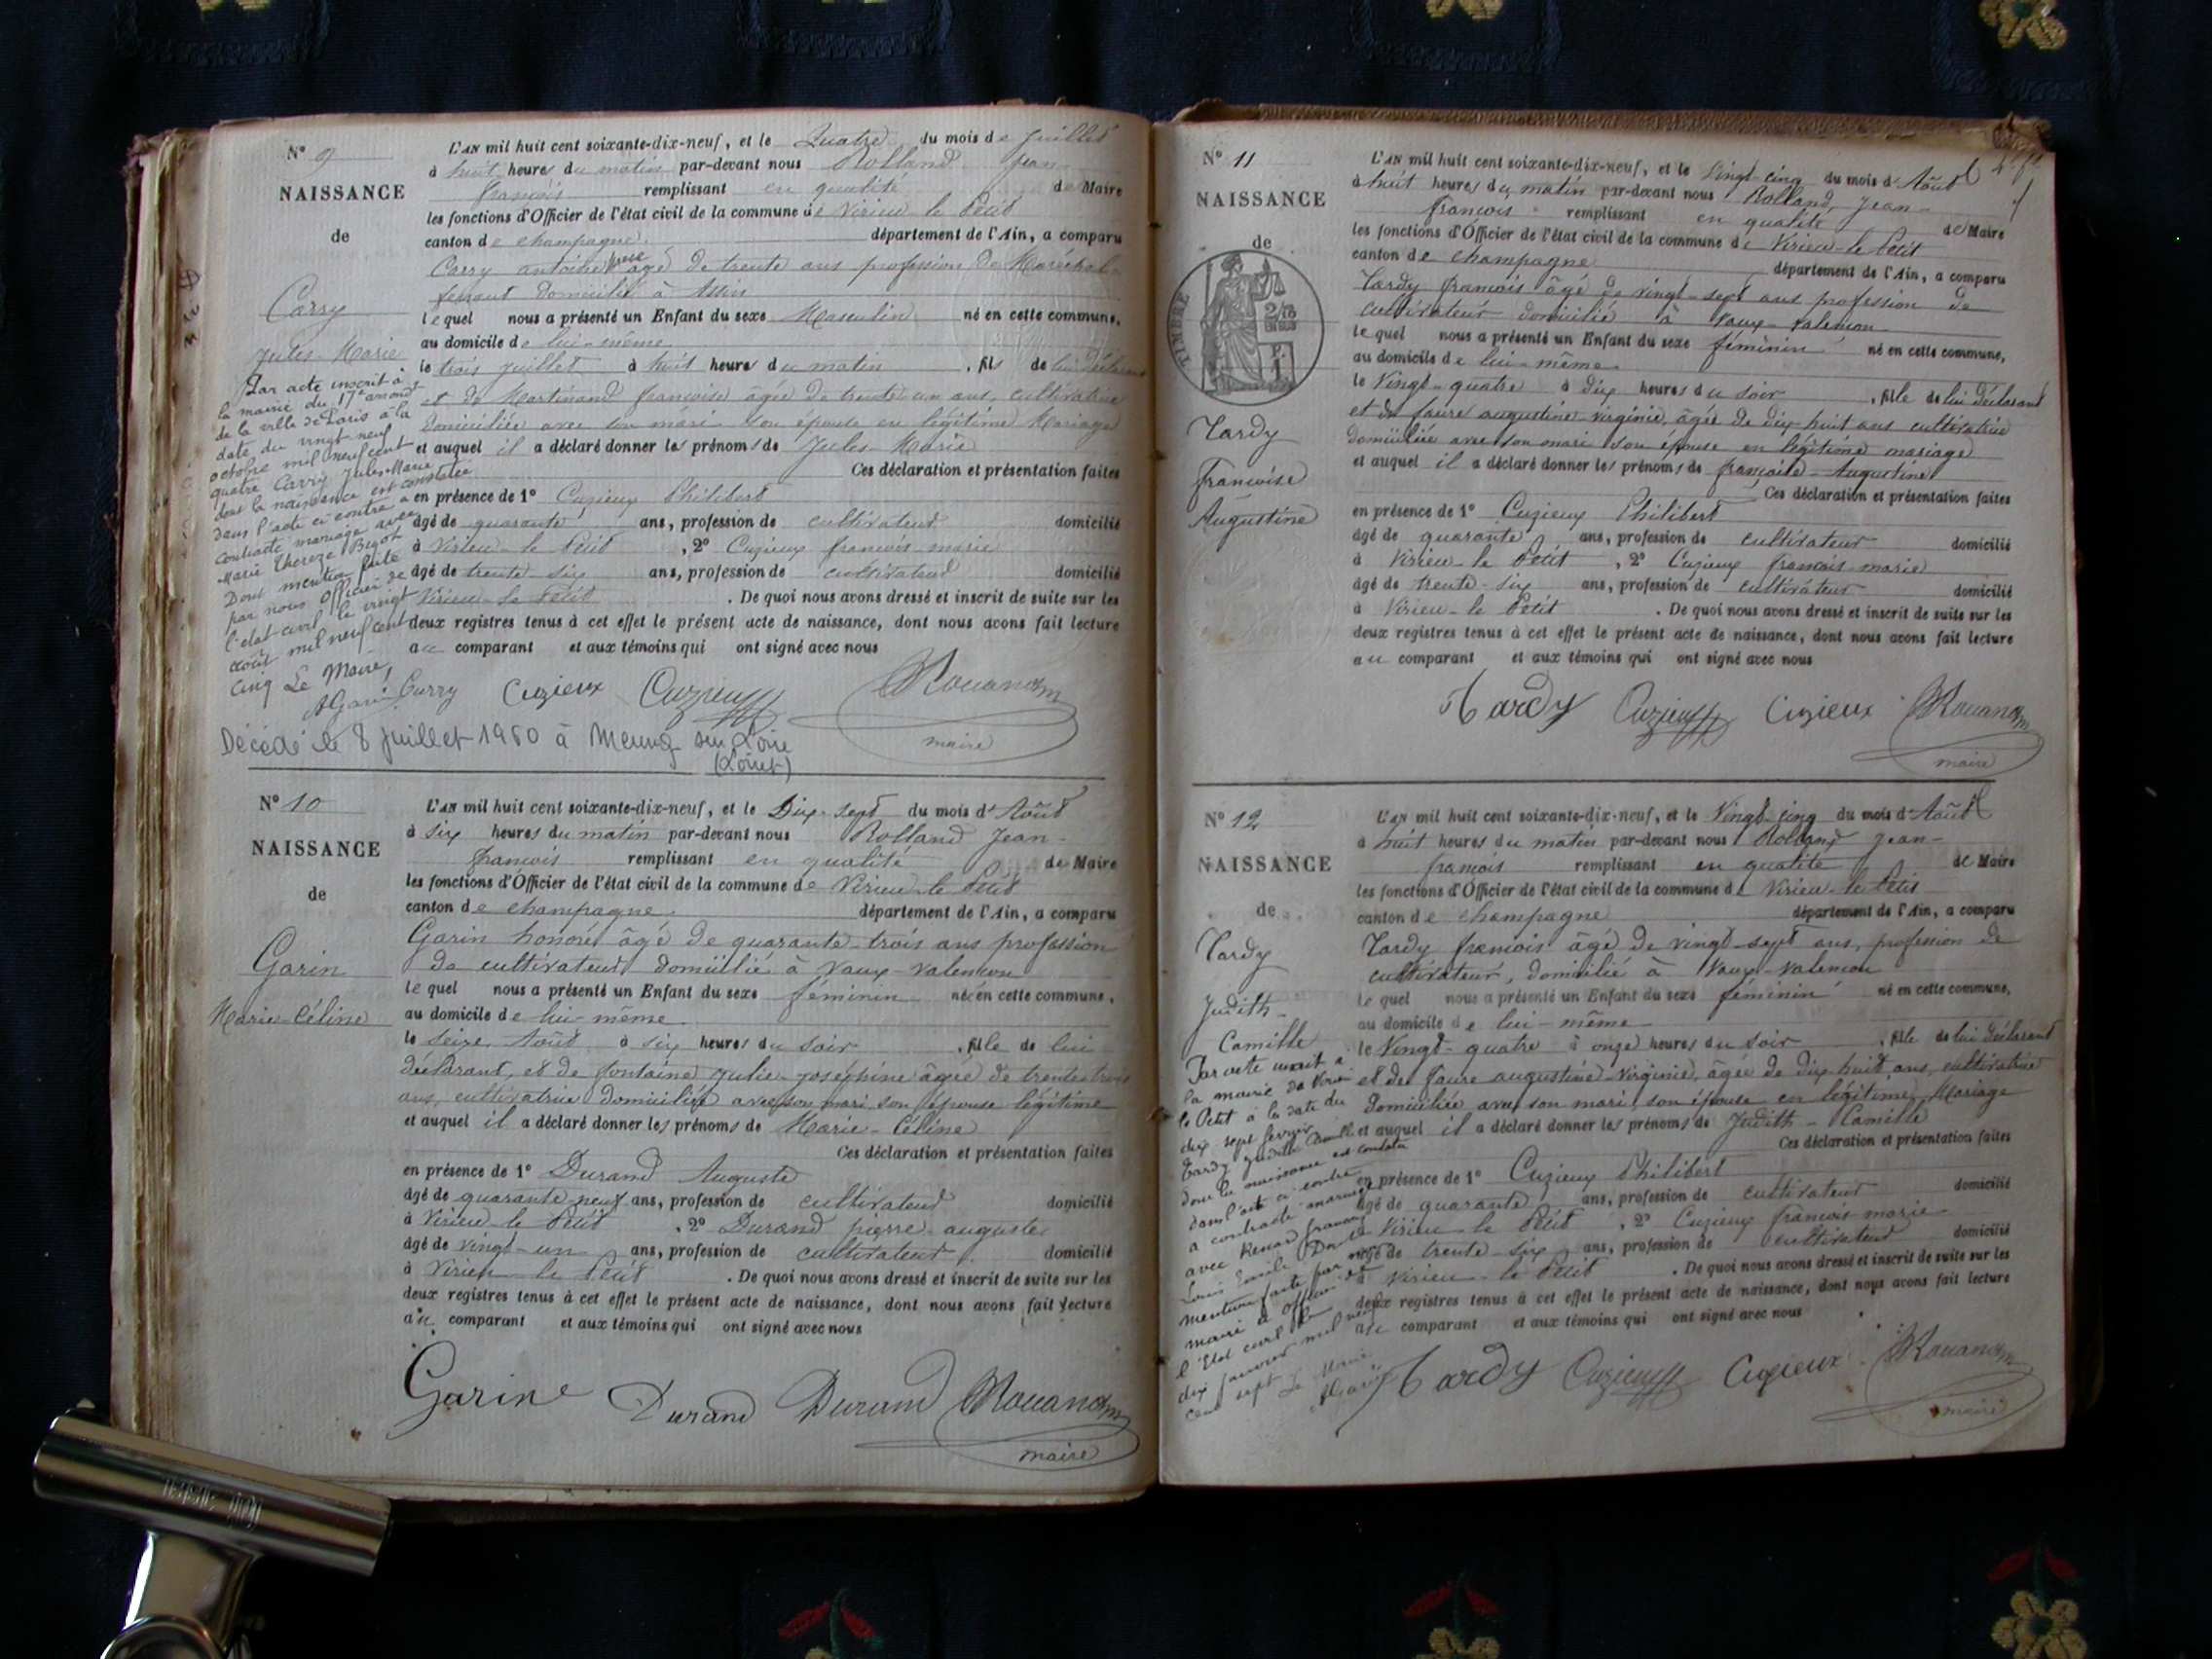 N° 9
NAISSANCE
de
Carry
Jules-Marie
Par acte inscrit à
la mairie du 17e arrond
de la ville de Paris à la
date du vingt neuf
octobre mil neuf cent
quatre Carry Jules-Marie
dont la naissance est constatée
dans l'acte ci-contre a
contracté mariage avec
Marie Thereze Bigot
Dont mention faite
par nous Officier de
l'état civil le vingt
août mil neuf cent
cinq Le Maire,
AGarin
L'AN mil huit cent soixante-dix-neuf, et le Quatre du mois de Juillet
à huit heures du matin par-devant nous Rolland Jean-
françois remplissant en qualité de Maire
les fonctions d'Officier de l'état civil de la commune de Virieu le Petit
canton de champagne département de l'Ain, a comparu
Carry antoine âgé de trente ans profession de Maréchal-
ferrant domicilié à Assin
lequel nous a présenté un Enfant du sexe Masculin né en cette commune,
au domicile de lui-même
le trois juillet à huit heures du matin, fils de lui déclarant
et de Martinand françoise âgée de trente un ans, cultivatrice
domiciliée avec son mari son épouse en légitime Mariage
et auquel il a déclaré donner les prénoms de Jules-Marie
Ces déclaration et présentation faites
en présence de 1° Cuzieux Philibert
âgé de quarante ans, profession de cultivateur domicilié
à Virieu-le Petit, 2° Cuzieux françois-marie
âgé de trente-six ans, profession de cultivateur domicilié
Virieu-le Petit. De quoi nous avons dressé et inscrit de suite sur les
deux registres tenus à cet effet le présent acte de naissance, dont nous avons fait lecture
au comparant et aux témoins qui ont signé avec nous
Carry Cuzieux Cuzieux
maire
Décédé le 8 Juillet 1950 à Meung sur Loire
(Loiret)
N° 10
NAISSANCE
de
Garin
Marie-Céline
L'AN mil huit cent soixante-dix-neuf, et le Dix-sept du mois d'Août
à six heures du matin par-devant nous Rolland Jean-
françois remplissant en qualité de Maire
les fonctions d'Officier de l'état civil de la commune de Virieu-le Petit
canton de champagne département de l'Ain, a comparu
Garin honoré âgé de quarante-trois ans profession
de cultivateur domicilié à Vaux-valencon
lequel nous a présenté un Enfant du sexe féminin né en cette commune,
au domicile de lui-même
le seize Août à six heures du soir, fille de lui
déclarant, et de fontaine julie-joséphine âgée de trente-trois
ans, cultivatrice domiciliée avec son mari son épouse légitime
et auquel il a déclaré donner les prénoms de Marie-Céline
Ces déclaration et présentation faites
en présence de 1° Durand Auguste
âgé de quarante-neuf ans, profession de cultivateur domicilié
à Virieu-le Petit, 2° Durand pierre-auguste
âgé de vingt-un ans, profession de cultivateur domicilié
à Virieu le Petit. De quoi nous avons dressé et inscrit de suite sur les
deux registres tenus à cet effet le présent acte de naissance, dont nous avons fait lecture
au comparant et aux témoins qui ont signé avec nous
Garin Durand Durand
maire
N° 11
NAISSANCE
de
TIMBRE
Tardy
francoise
Augustine
L'AN mil huit cent soixante-dix-neuf, et le Vingt-cinq du mois d'Août
à huit heures du matin par-devant nous Rolland Jean-
françois remplissant en qualité de Maire
les fonctions d'Officier de l'état civil de la commune de Virieu-le Petit
canton de champagne département de l'Ain, a comparu
Tardy françois âgé de vingt-sept ans profession de
cultivateur domicilié à Vaux-valencon
lequel nous a présenté un Enfant du sexe féminin né en cette commune,
au domicile de lui-même
le Vingt-quatre à dix heures du soir, fille de lui déclarant
et de faure augustine-virginie, âgée de dix-huit ans cultivatrice
domiciliée avec son mari son épouse en légitime mariage
et auquel il a déclaré donner les prénoms de françoise-Augustine
Ces déclaration et présentation faites
en présence de 1° Cuzieux Philibert
âgé de quarante ans, profession de cultivateur domicilié
à Virieu-le Petit, 2° Cuzieux françois-marie
âgé de trente-six ans, profession de cultivateur domicilié
à Virieu-le Petit. De quoi nous avons dressé et inscrit de suite sur les
deux registres tenus à cet effet le présent acte de naissance, dont nous avons fait lecture
au comparant et aux témoins qui ont signé avec nous
Tardy Cuzieux Cuzieux
maire
N° 12
NAISSANCE
de
Tardy
Judith-
Camille
Par acte inscrit à
la mairie de Virieu
le Petit à la date du
dix sept février
Tardy Judith Camille
dont la naissance est constatée
dans l'acte ci-contre
a contracté mariage
avec Renard françois
Louis Emile Dont
mention faite par nous
maire et officier de
l'état civil le
dix janvier mil neuf
cent sept Le Maire
AGarin
L'AN mil huit cent soixante-dix-neuf, et le Vingt-cinq du mois d'Août
à huit heures du matin par-devant nous Rolland Jean-
françois remplissant en qualité de Maire
les fonctions d'Officier de l'état civil de la commune de Virieu-le Petit
canton de champagne département de l'Ain, a comparu
Tardy françois âgé de vingt-sept ans, profession de
cultivateur, domicilié à Vaux-valencon
lequel nous a présenté un Enfant du sexe féminin né en cette commune,
au domicile de lui-même
le Vingt-quatre à onze heures du soir, fille de lui déclarant
et de faure augustine-virginie, âgée de dix-huit ans, cultivatrice
domiciliée avec son mari, son épouse en légitime Mariage
et auquel il a déclaré donner les prénoms de Judith-Camille
Ces déclaration et présentation faites
en présence de 1° Cuzieux Philibert
âgé de quarante ans, profession de cultivateur domicilié
à Virieu-le Petit, 2° Cuzieux françois-marie
âgé de trente six ans, profession de cultivateur domicilié
à Virieu-le Petit. De quoi nous avons dressé et inscrit de suite sur les
deux registres tenus à cet effet le présent acte de naissance, dont nous avons fait lecture
au comparant et aux témoins qui ont signé avec nous
Tardy Cuzieux Cuzieux
maire